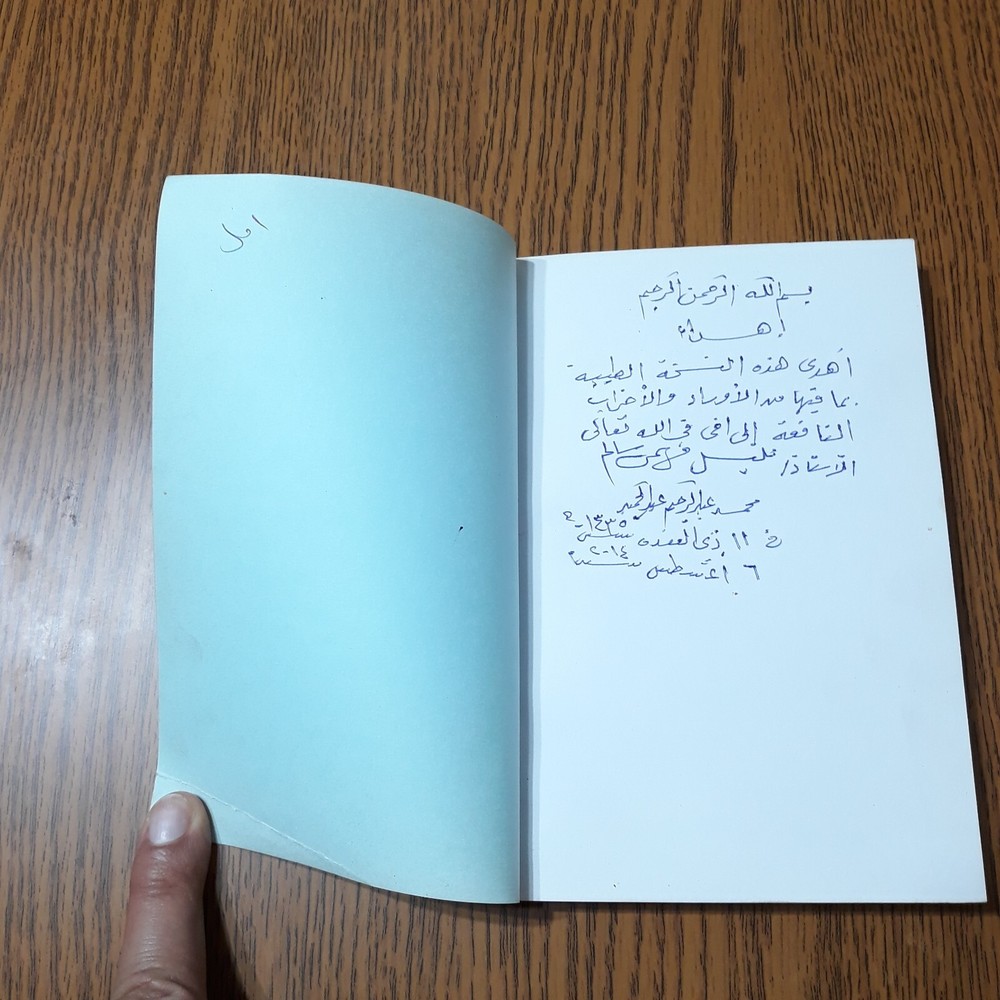 بسم الله الرحمن الرحيم
إهداء
أهدى هذه النسخة الطيبة
بما فيها من الأوراد والأحزاب
النافعة إلى أخى فى الله تعالى
الأستاذ/
محمد عبدالرحيم عبدالحميد
فى ١١ ذى القعدة سنة ١٤٣٥ هـ
٦ أغسطس سنة ٢٠١٤